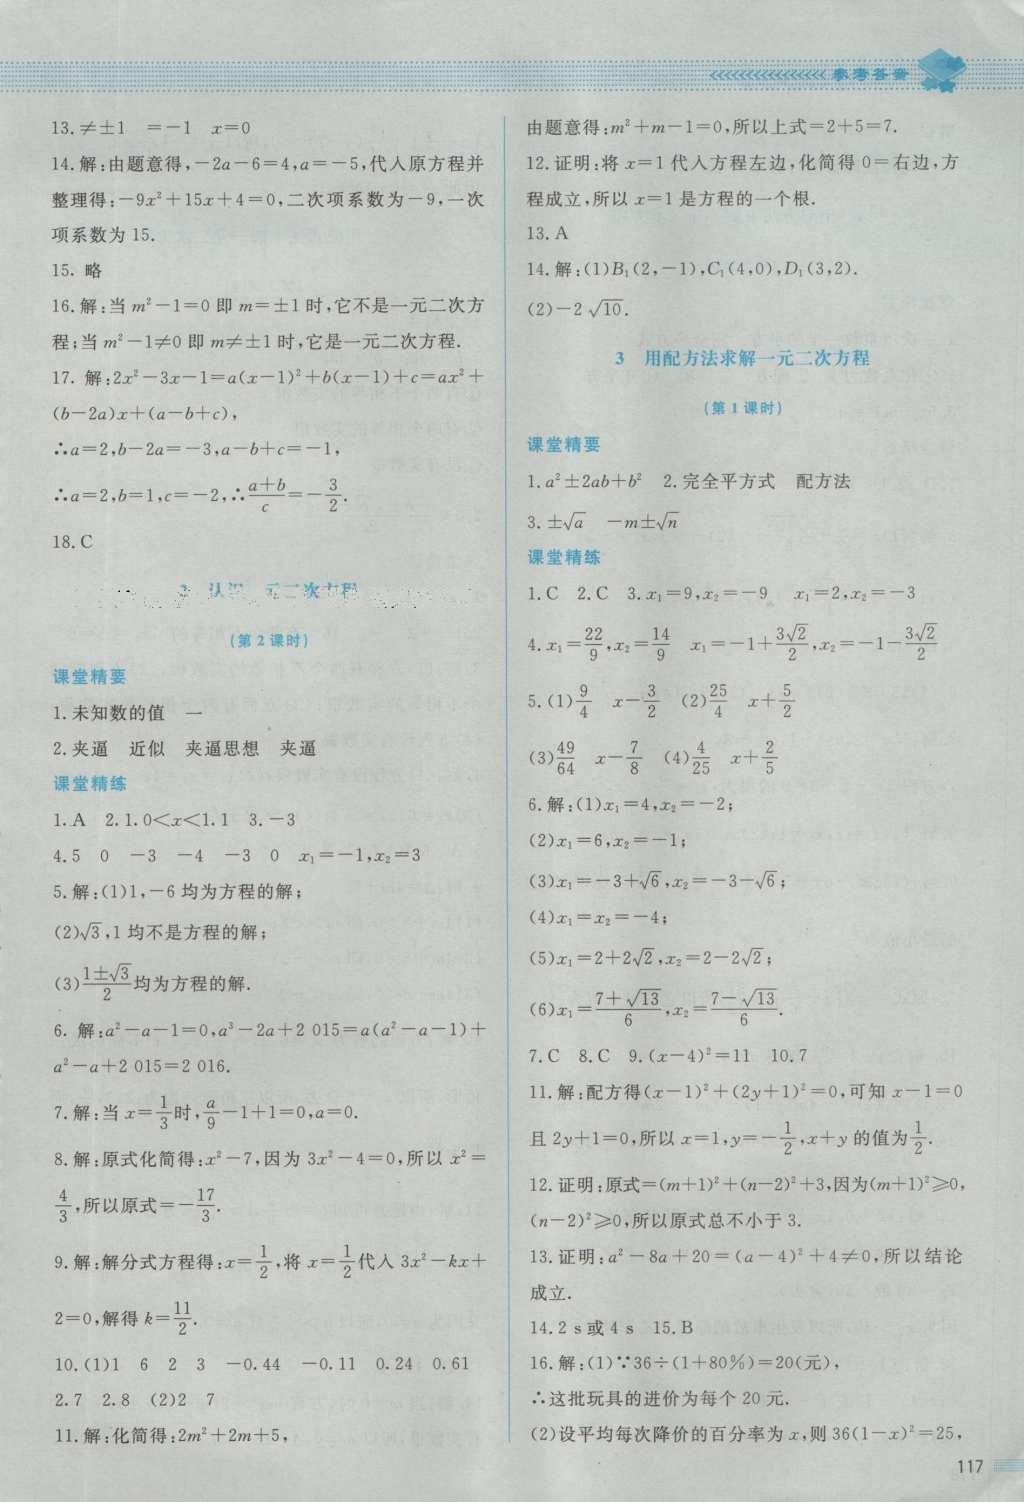 参考答案
13.≠±1　=-1　x=0
14.解:由题意得,-2a-6=4,a=-5,代入原方程并
整理得:-9x²+15x+4=0,二次项系数为-9,一次
项系数为15.
15. 略
16.解:当m²-1=0即m=±1时,它不是一元二次方
程;当m²-1≠0即m≠±1时,它是一元二次方程.
17. 解:2x²-3x-1=a(x-1)²+b(x-1)+c=ax²+
(b-2a)x+(a-b+c),
∴a=2,b-2a=-3,a-b+c=-1,
∴a=2,b=1,c=-2,∴(a+b)/c=-3/2.
18.C
元二次方程
(第2课时)
课堂精要
1.未知数的值　一
2.夹逼　近似　夹逼思想　夹逼
课堂精练
1.A　2.1.0<x<1.1　3.-3
4.5　0　-3　-4　-3　0　x₁=-1,x₂=3
5.解:(1)1,-6均为方程的解;
(2)√3,1均不是方程的解;
(3)(1±√3)/2均为方程的解.
6. 解:a²-a-1=0,a³-2a+2 015=a(a²-a-1)+
a²-a+2 015=2 016.
7.解:当x=1/3时,a/9-1+1=0,a=0.
8.解:原式化简得:x²-7,因为3x²-4=0,所以x²=
4/3,所以原式=-17/3.
9.解:解分式方程得:x=1/2,将x=1/2代入3x²-kx+
2=0,解得k=11/2.
10.(1)1　6　2　3　-0.44　-0.11　0.24　0.61
2.7　2.8　(2)2　7
11.解:化简得:2m²+2m+5,
由题意得:m²+m-1=0,所以上式=2+5=7.
12.证明:将x=1代入方程左边,化简得0=右边,方
程成立,所以x=1是方程的一个根.
13.A
14.解:(1)B₁(2,-1),C₁(4,0),D₁(3,2).
(2)-2√10.
3　用配方法求解一元二次方程
(第1课时)
课堂精要
1.a²±2ab+b²　2.完全平方式　配方法
3.±√a　-m±√n
课堂精练
1.C　2.C　3.x₁=9,x₂=-9　x₁=2,x₂=-3
4.x₁=22/9,x₂=14/9　x₁=-1+3√2/2,x₂=-1-3√2/2
5.(1)9/4　x-3/2　(2)25/4　x+5/2
(3)49/64　x-7/8　(4)4/25　x+2/5
6.解:(1)x₁=4,x₂=-2;
(2)x₁=6,x₂=-1;
(3)x₁=-3+√6,x₂=-3-√6;
(4)x₁=x₂=-4;
(5)x₁=2+2√2,x₂=2-2√2;
(6)x₁=(7+√13)/6,x₂=(7-√13)/6.
7.C　8.C　9.(x-4)²=11　10.7
11.解:配方得(x-1)²+(2y+1)²=0,可知x-1=0
且2y+1=0,所以x=1,y=-1/2,x+y的值为1/2.
12.证明:原式=(m+1)²+(n-2)²+3,因为(m+1)²≥0,
(n-2)²≥0,所以原式总不小于3.
13.证明:a²-8a+20=(a-4)²+4≠0,所以结论
成立.
14.2 s或4 s　15.B
16.解:(1)∵36÷(1+80%)=20(元),
∴这批玩具的进价为每个20元.
(2)设平均每次降价的百分率为x,则36(1-x)²=25,
117